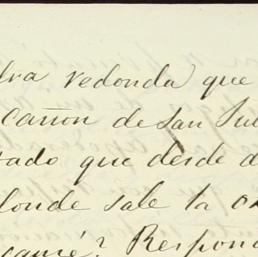 dra redonda que
Cañon de San Jul
tado que desde d
donde sale la o
? Respon